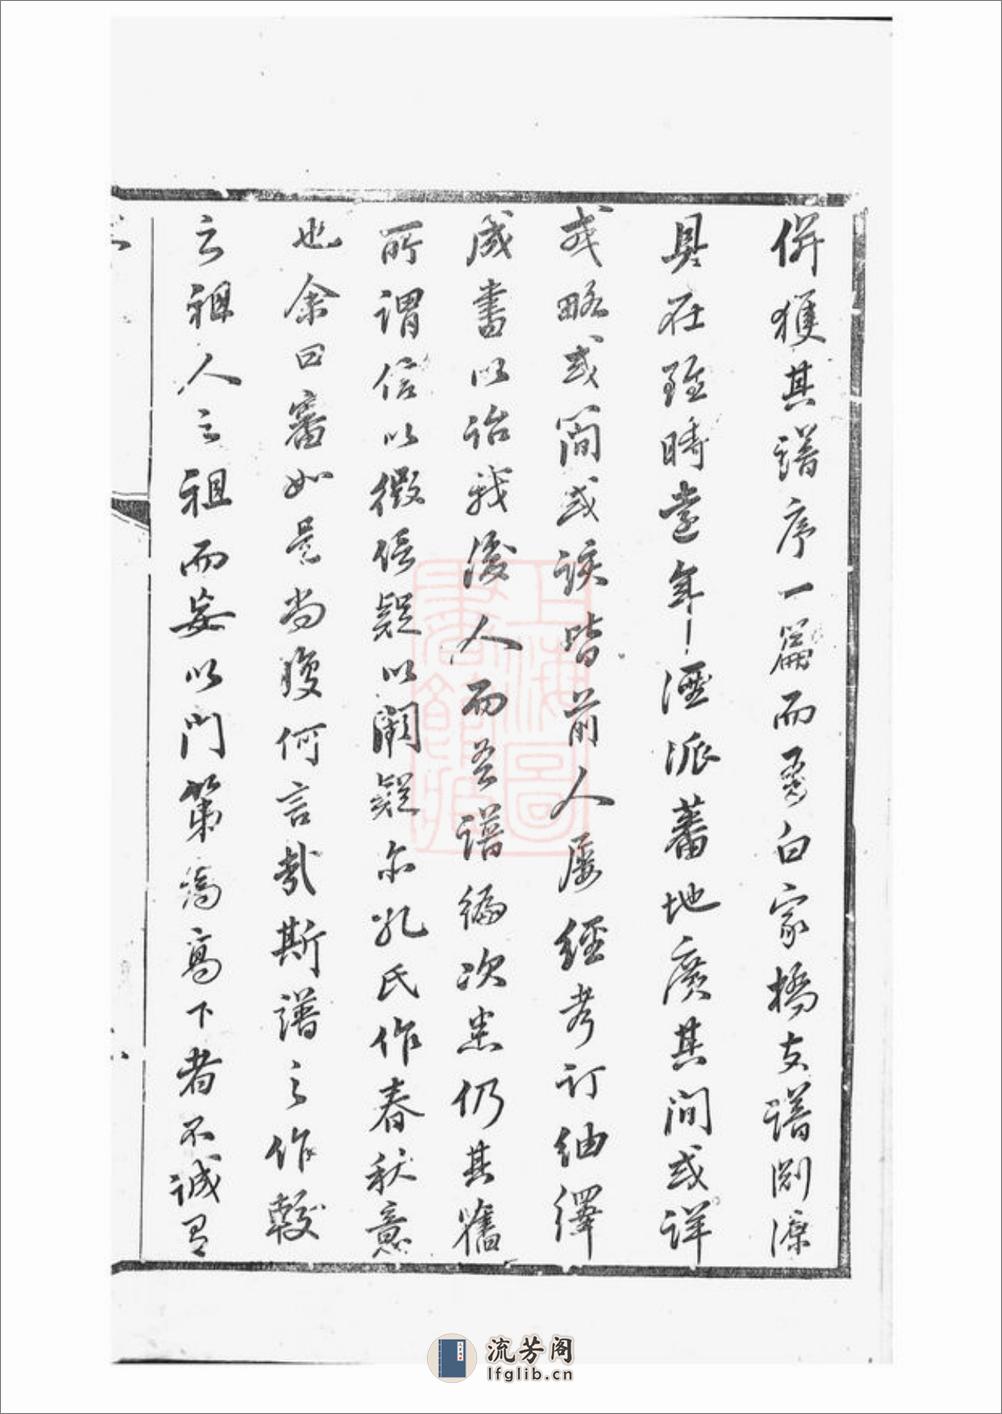 併獲其譜序一篇而吾白家橋支譜淵源
具在雖時遠年湮派蕃地廣其間或詳
或略或簡或該皆前人屢經考訂紬繹
成書以詒我後人而吾譜編次悉仍其舊
所謂信以徵信疑以闕疑亦孔氏作春秋意
也余曰審如是尚腹何言哉斯譜之作較
之祖人之祖而妄以門第為高下者不誠有
上海圖書館藏
流芳阁
lfglib.cn